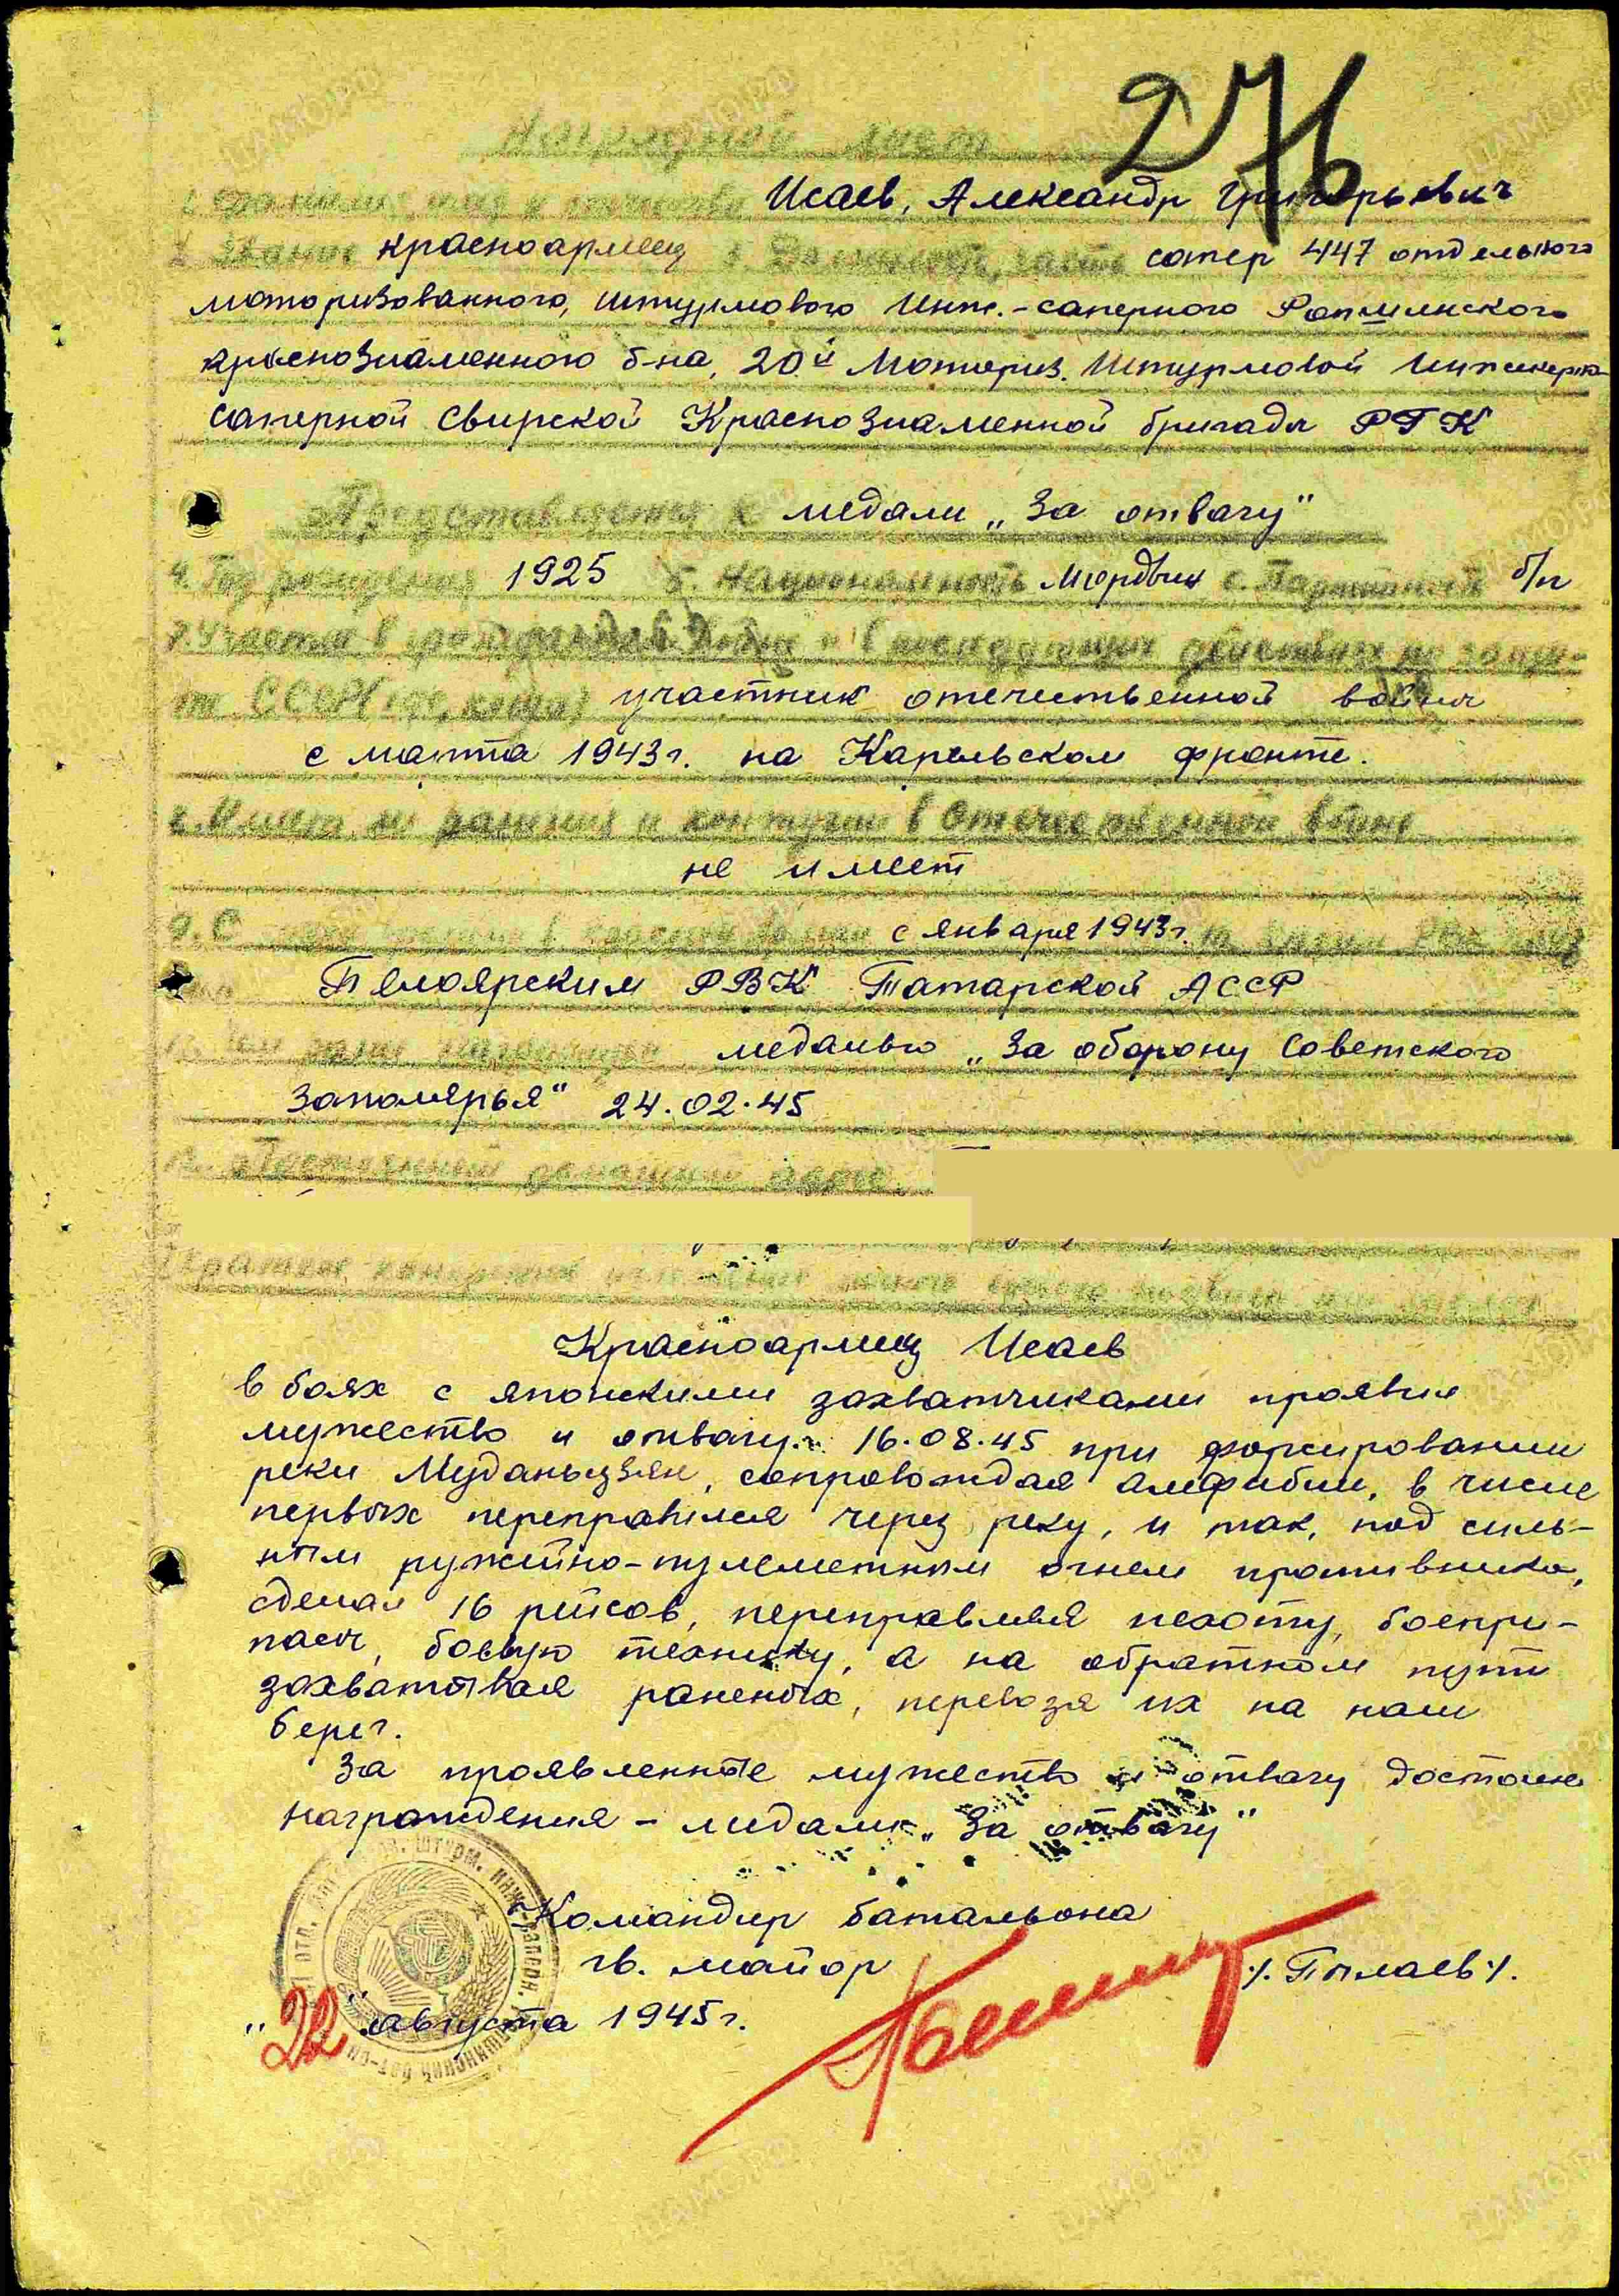 276
Наградной лист
1. Фамилия, имя и отчество Исаев, Александр Григорьевич
2. Звание красноармеец 3. Должность, часть сапер 447 отдельного
моторизованного, штурмового Инж.-саперного Ропшинского
краснознаменного б-на, 20й Моториз. Штурмовой Инженерно-
саперной Свирской Краснознаменной бригады РГК
Представляется к медали „За отвагу"
4. Год рождения 1925 5. Национальность мордвин 6. Партийность б/п
7. Участие в гражданской войне и в последующих действиях по защи-
те СССР (где, когда) участник отечественной войны
с марта 1943г. на Карельском фронте.
8. Имеет ли ранения и контузии в Отечественной войне
не имеет
9. С с января 1943г.
РВК Татарской АССР
10. Чем ранее награжден медалью „За оборону Советского
Заполярья" 24.02.45
Постоянный домашний адрес
Красноармеец Исаев
в боях с японскими захватчиками проявил
мужество и отвагу. 16.08.45 при форсировании
реки Муданьцзян, сопровождая амфибии, в числе
первых переправился через реку, и так, под силь-
ным ружейно-пулеметным огнем противника,
сделал 16 рейсов, переправляя пехоту, боепри-
пасы, боевую технику, а на обратном пути
захватывая раненых, перевозя их на наш
берег.
За проявленные мужество и отвагу достоин
награждения – медали „За отвагу"
Командир батальона
гв. майор /. Пылаев /.
„22" августа 1945г.